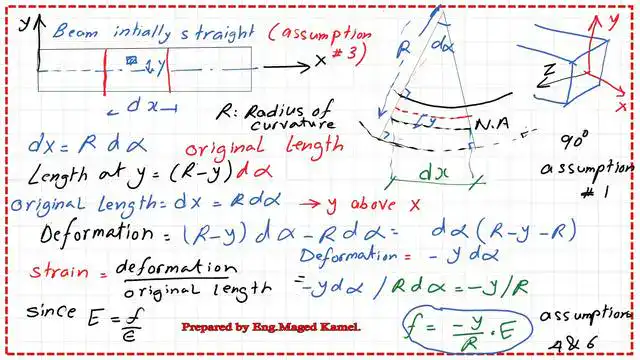 y
Beam intially straight (assumption #3)
y
x
dx
R
dα
y
N.A
dx
y
z
x
R: Radius of curvature
90°
assumption #1
dx = R dα original length
Length at y = (R-y) dα
original length = dx = R dα → y above x
Deformation = (R-y) dα - R dα = dα (R-y-R)
Deformation = - y dα
strain = deformation / original length = -y dα / R dα = -y/R
since E = f/ϵ
Prepared by Eng.Maged Kamel.
f = -y/R . E
assumptions 4&6